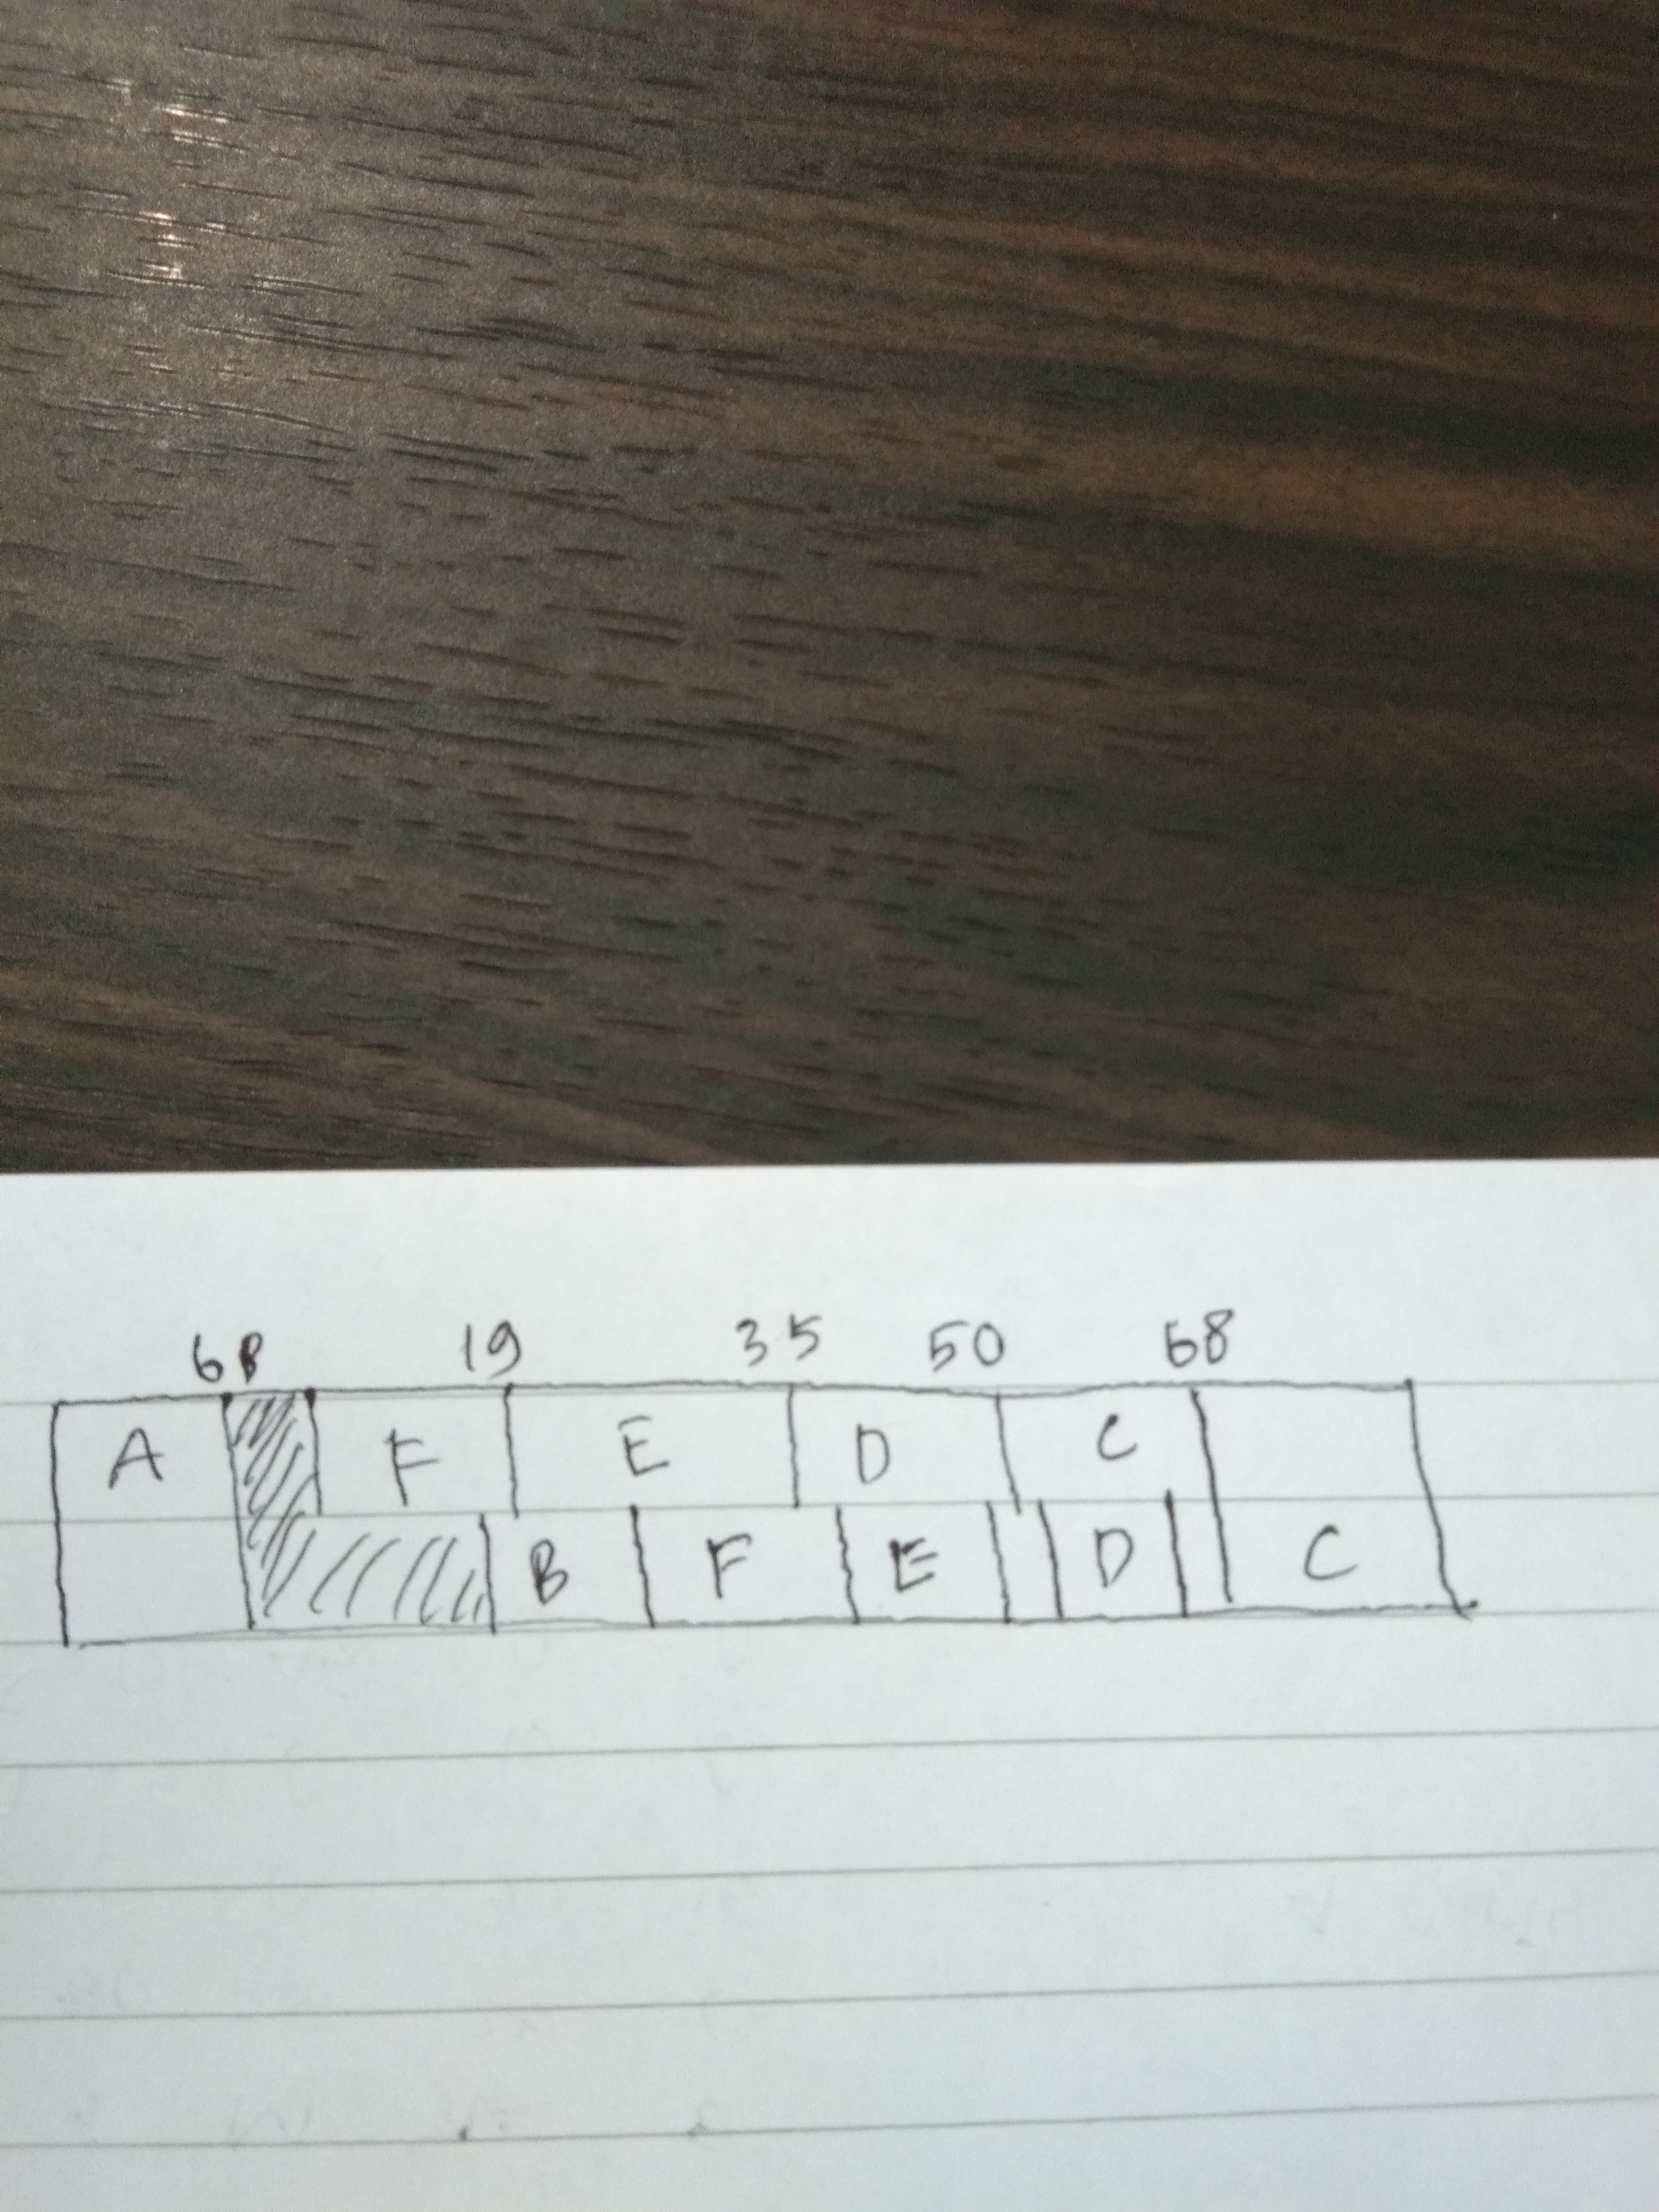 6 B 19 35 50 68
A F E D C
B F E D C